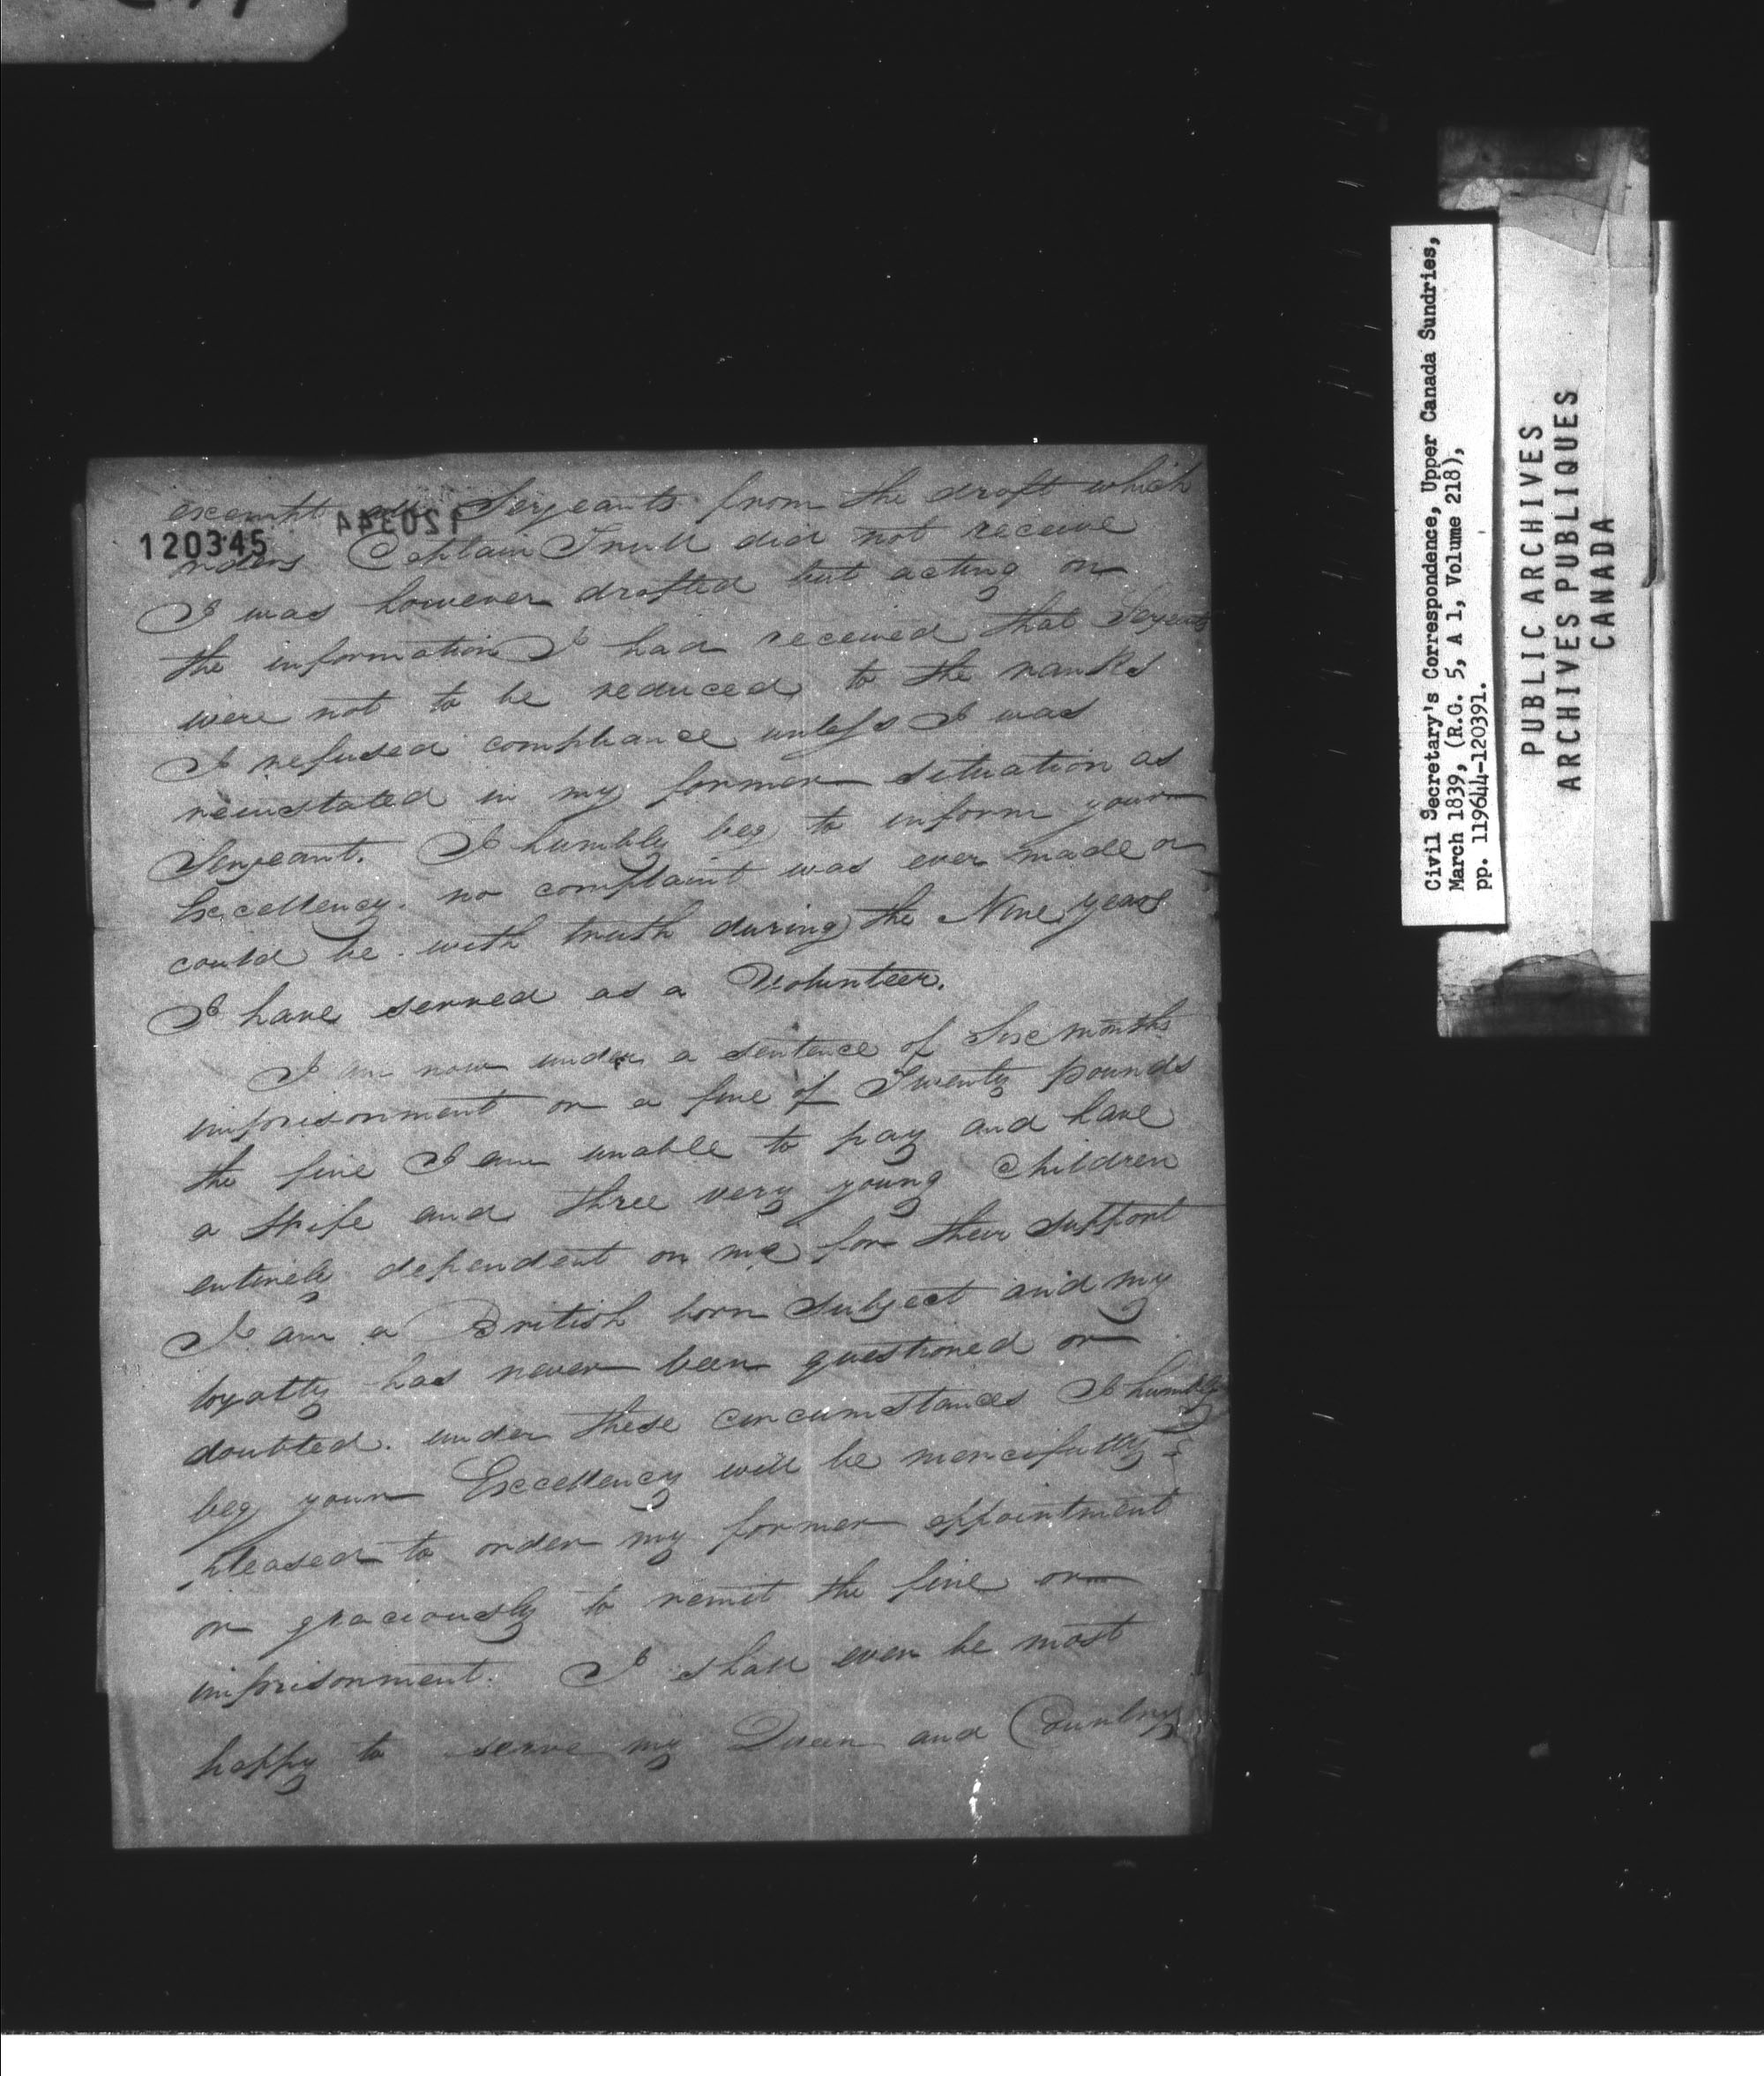 exempt all Sergeants from the draft which
120344
120345
orders Captain Trull did not receive
I was however drafted but acting on
the information I had received that Sergeants
were not to be reduced to the ranks
I refused compliance unless I was
reinstated in my former situation as
Sergeant. I humbly beg to inform your
Excellency. no complaint was ever made or
could be with truth during the Nine years
I have served as a Volunteer.
I am now under a sentence of Six months
imprisonment or a fine of Twenty pounds
the fine I am unable to pay and have
a Wife and three very young Children
entirely dependent on me for their support
I am a British born Subject and my
loyalty has never been questioned or
doubted. under these circumstances I humbly
beg your Excellency will be mercifully
pleased to order my former appointment
or graciously to remit the fine or
imprisonment. I shall ever be most
happy to serve my Queen and Country
Civil Secretary's Correspondence, Upper Canada Sundries,
March 1839, (R.G. 5, A 1, Volume 218),
pp. 119644-120391.
PUBLIC ARCHIVES
ARCHIVES PUBLIQUES
CANADA